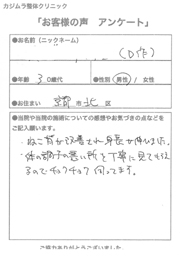 カジムラ整体クリニック
「お客様の声 アンケート」
●お名前(ニックネーム)
(D作)
●年齢 30歳代 ●性別 男性 / 女性
●お住まい 京都市北区
●当院や当院の施術についての感想やお気づきの点などを
ご記入願います。
・ねこ背が改善され身長が伸びました。
・体の調子の悪い所を丁寧に見てもらえ
るのでチョクチョク伺ってます。
ご協力ありがとうございました